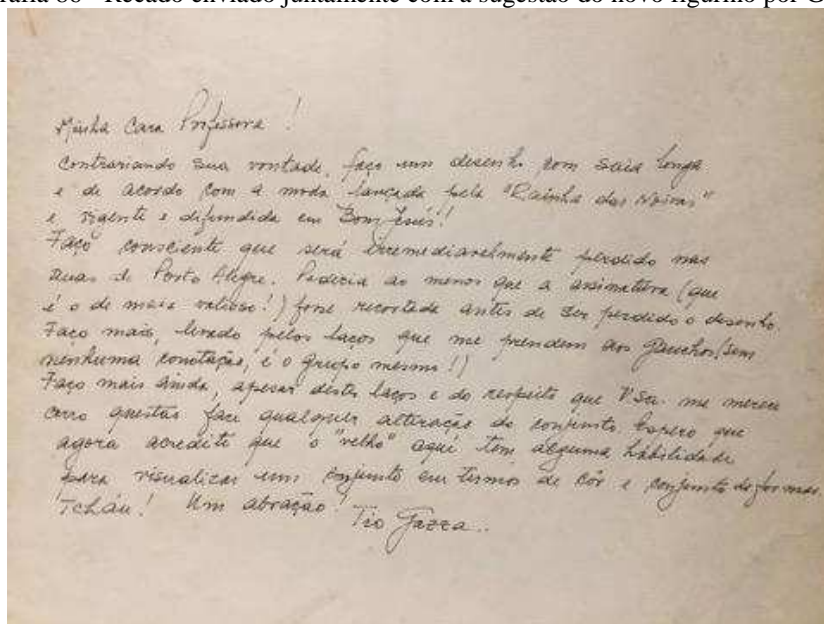 Recado enviado juntamente com a sugestão do novo figurino por G
Minha Cara Professora!
Contrariando sua vontade, faço um desenho com saia longa
e de acordo com a moda lançada pela "Rainha das Noivas"
e vigente e difundida em Bom Jesus!
Faço consciente que será irremediavelmente perdido nas
ruas de Porto Alegre. Pediria ao menos que a assinatura (que
é o de mais valioso!) fosse recortada antes de ser perdido o desenho.
Faço mais, levado pelos laços que me prendem aos Gauchos (sem
nenhuma conotação, é o grupo mesmo!)
Faço mais ainda, apesar destes laços e do respeito que V.Sa. me merece
questão face qualquer alteração do conjunto. Espero que
agora acredite que o "velho" aqui tem alguma habilidade
para visualizar um conjunto em termos de côr e conjunto de formas.
Tcháu! Um abração!
Tio Gazza..